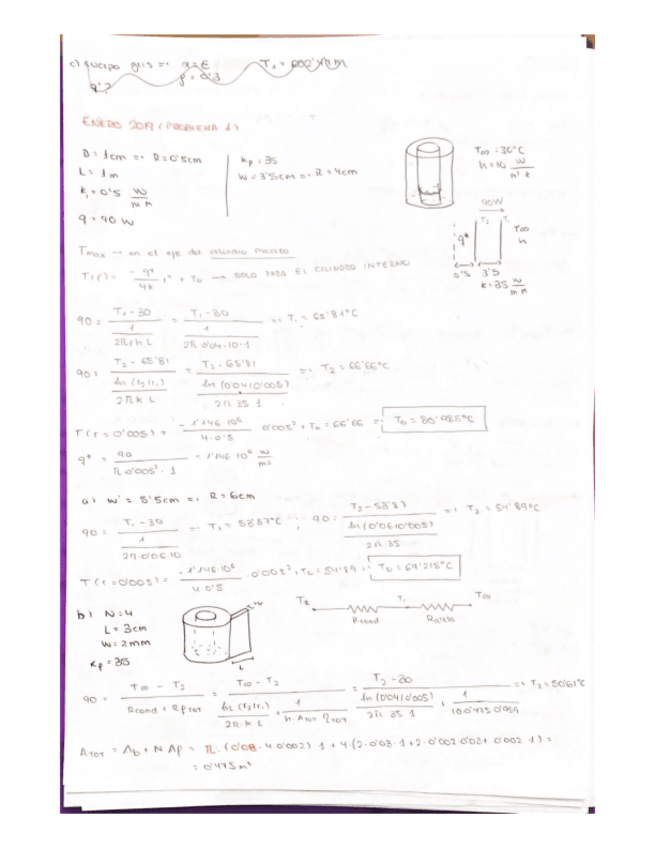 c) cuerpo gris => α=ε T₁ = 600'
ρ = 0'3
q'?
ENERO 2019 (PROBLEMA 1)
D = 1cm => R=0'5cm
L = 1m
k₁ = 0'5 W/mK
q = 90 W
kp = 35
W = 3'5cm => R = 4cm
T∞ = 30°C
h = 10 W/m²·K
90W
q* T₂ T₁ T∞ h
0'5 3'5
k = 35 W/mK
Tmax → en el eje del cilindro macizo
T(r) = -q*/4k r² + T₀ → SOLO PARA EL CILINDRO INTERNO
90 = (T₁-30)/(1/(2πrhL)) = (T₁-30)/(1/(2π·0'04·10·1)) => T₁ = 65'81°C
90 = (T₂-65'81)/(ln(r₂/r₁)/(2πkL)) = (T₂-65'81)/(ln(0'04/0'005)/(2π·35·1)) => T₂ = 66'66°C
T(r=0'005) = -1'146·10⁶/(4·0'5) 0'005² + T₀ = 66'66 => T₀ = 80'985°C
q* = 90/(π·0'005²·1) = 1'146·10⁶ W/m³
a) W = 5'5cm => R = 6cm
90 = (T₁-30)/(1/(2π·0'06·10)) => T₁ = 53'87°C ; 90 = (T₂-53'87)/(ln(0'06/0'005)/(2π·35)) => T₂ = 54'89°C
T(r=0'005) = -1'146·10⁶/(4·0'5) · 0'005² + T₀ = 54'89 => T₀ = 69'215°C
b) N = 4
L = 3cm
W = 2mm
kp = 35
W
L
T₂ T₁ T∞
Rcond Raleta
90 = (T∞ - T₂)/(Rcond + RpTOT) = (T∞ - T₂)/(ln(r₂/r₁)/(2π·k·L) + 1/(h·ATOT·ηTOT)) = (T₂-30)/(ln(0'04/0'005)/(2π·35·1) + 1/(10·0'475·0'959)) => T₂ = 50'61°C
ATOT = Ab + N Ap = π·(0'08·4·0'002)·1 + 4·(2·0'03·1+2·0'002·0'03+0'002·1) =
= 0'475 m²